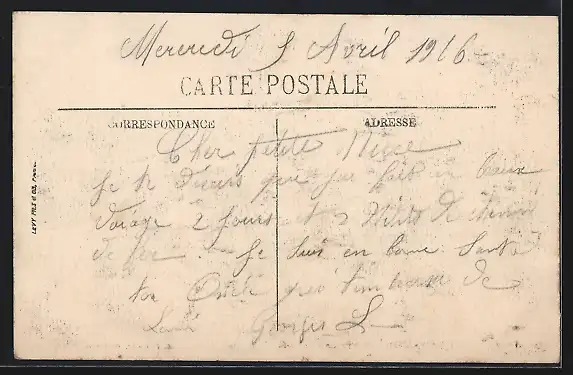 Mercredi 5 Avril 1916
CARTE POSTALE
CORRESPONDANCE
ADRESSE
Cher petite Niece
Je te dirais que j'ai fait un beaux
voyage 2 jours et 2 Nuits de chemin
de fer. Je suis en bonne Santé
ton Oncle qui t'embrasse de
Georges L
LEVY FILS & CIE, PARIS